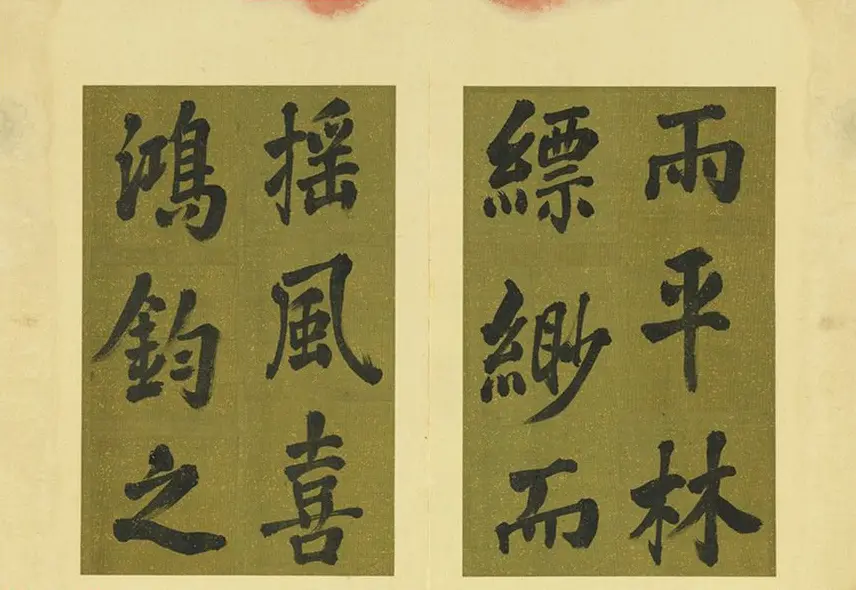 雨平林
縹緲而
揺風喜
鴻鈞之